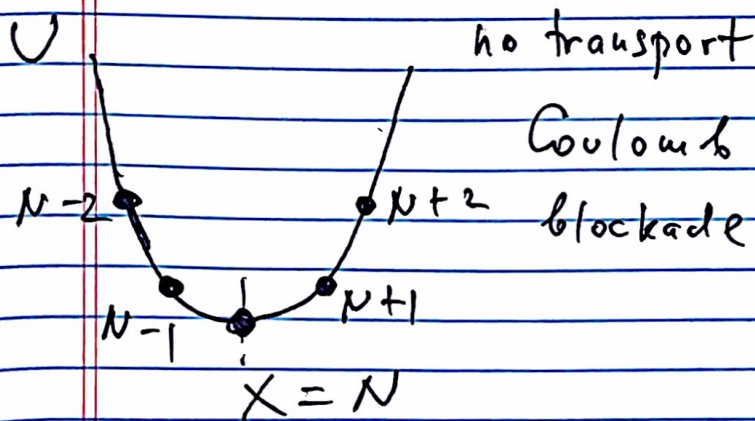 U
no transport
Coulomb
blockade
N-2
N+2
N-1
N+1
X = N